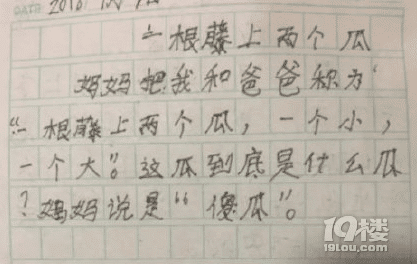 2016
一根藤上两个瓜
妈妈把我和爸爸称为
“一根藤上两个瓜，一个小，
一个大”。这瓜到底是什么瓜
？妈妈说是“傻瓜”。
19楼
19lou.com